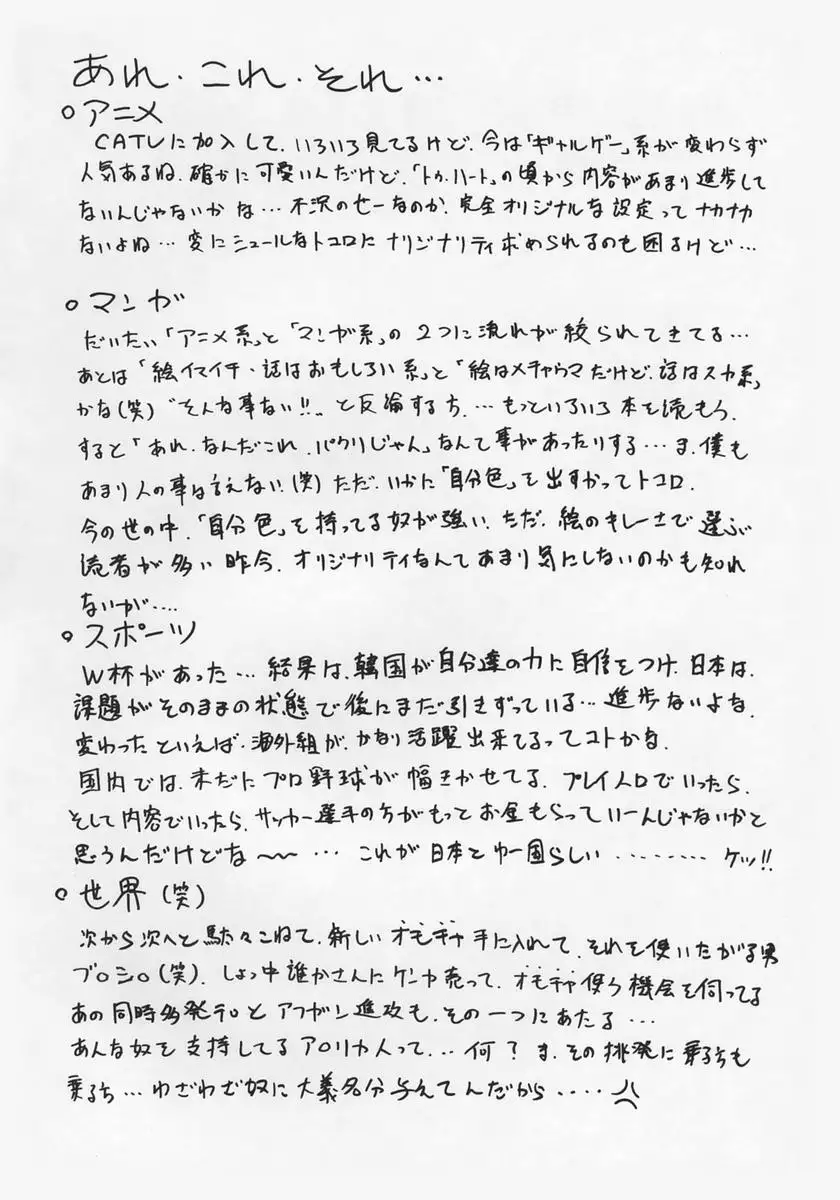 あれ・これ・それ…
○アニメ
CATVに加入して、いろいろ見てるけど、今は「ギャルゲー」系が変わらず
人気あるね、確かに可愛いんだけど、「トゥ・ハート」の頃から内容があまり進歩して
ないんじゃないかな…不況のせーなのか、完全オリジナルな設定ってナカナカ
ないよね…変にシュールなトコロにオリジナリティ求められるのも困るけど…
○マンガ
だいたい「アニメ系」と「マンガ系」の2つに流れが絞られてきてる…
あとは「絵イマイチ・話はおもしろい系」と「絵はメチャウマだけど、話はスカ系」
かな(笑)“そんな事ない!!„と反論する方、…もっといろいろ本を読もう、
すると「あれ、なんだこれ、パクリじゃん」なんて事があったりする…ま、僕も
あまり人の事は言えない、(笑)ただ、いかに「自分色」を出すかってトコロ、
今の世の中、「自分色」を持ってる奴が強い、ただ、絵のキレーさで選ぶ
読者が多い昨今、オリジナリティなんてあまり気にしないのかも知れ
ないが‥‥
○スポーツ
W杯があった…結果は、韓国が自分達の力に自信をつけ、日本は、
課題がそのままの状態で後にまだ引きずっている…進歩ないよな、
変わったといえば、海外組が、かなり活躍出来てるってコトかな、
国内では、未だにプロ野球が幅きかせてる、プレイ人口でいったら、
そして内容でいったら、サッカー選手の方がもっとお金もらっていーんじゃないかと
思うんだけどな〜〜…これが日本とゆー国らしい………ケッ!!
○世界(笑)
次から次へと駄々こねて、新しいオモチャ手に入れて、それを使いたがる男
ブ○シ○(笑)、しょっ中誰かさんにケンカ売って、オモチャ使う機会を伺ってる
あの同時多発テロとアフガン進攻も、その一つにあたる…
あんな奴を支持してるア○リカ人って、…何?ま、その挑発に乗る方も
乗る方…わざわざ奴に大義名分与えてんだから‥‥